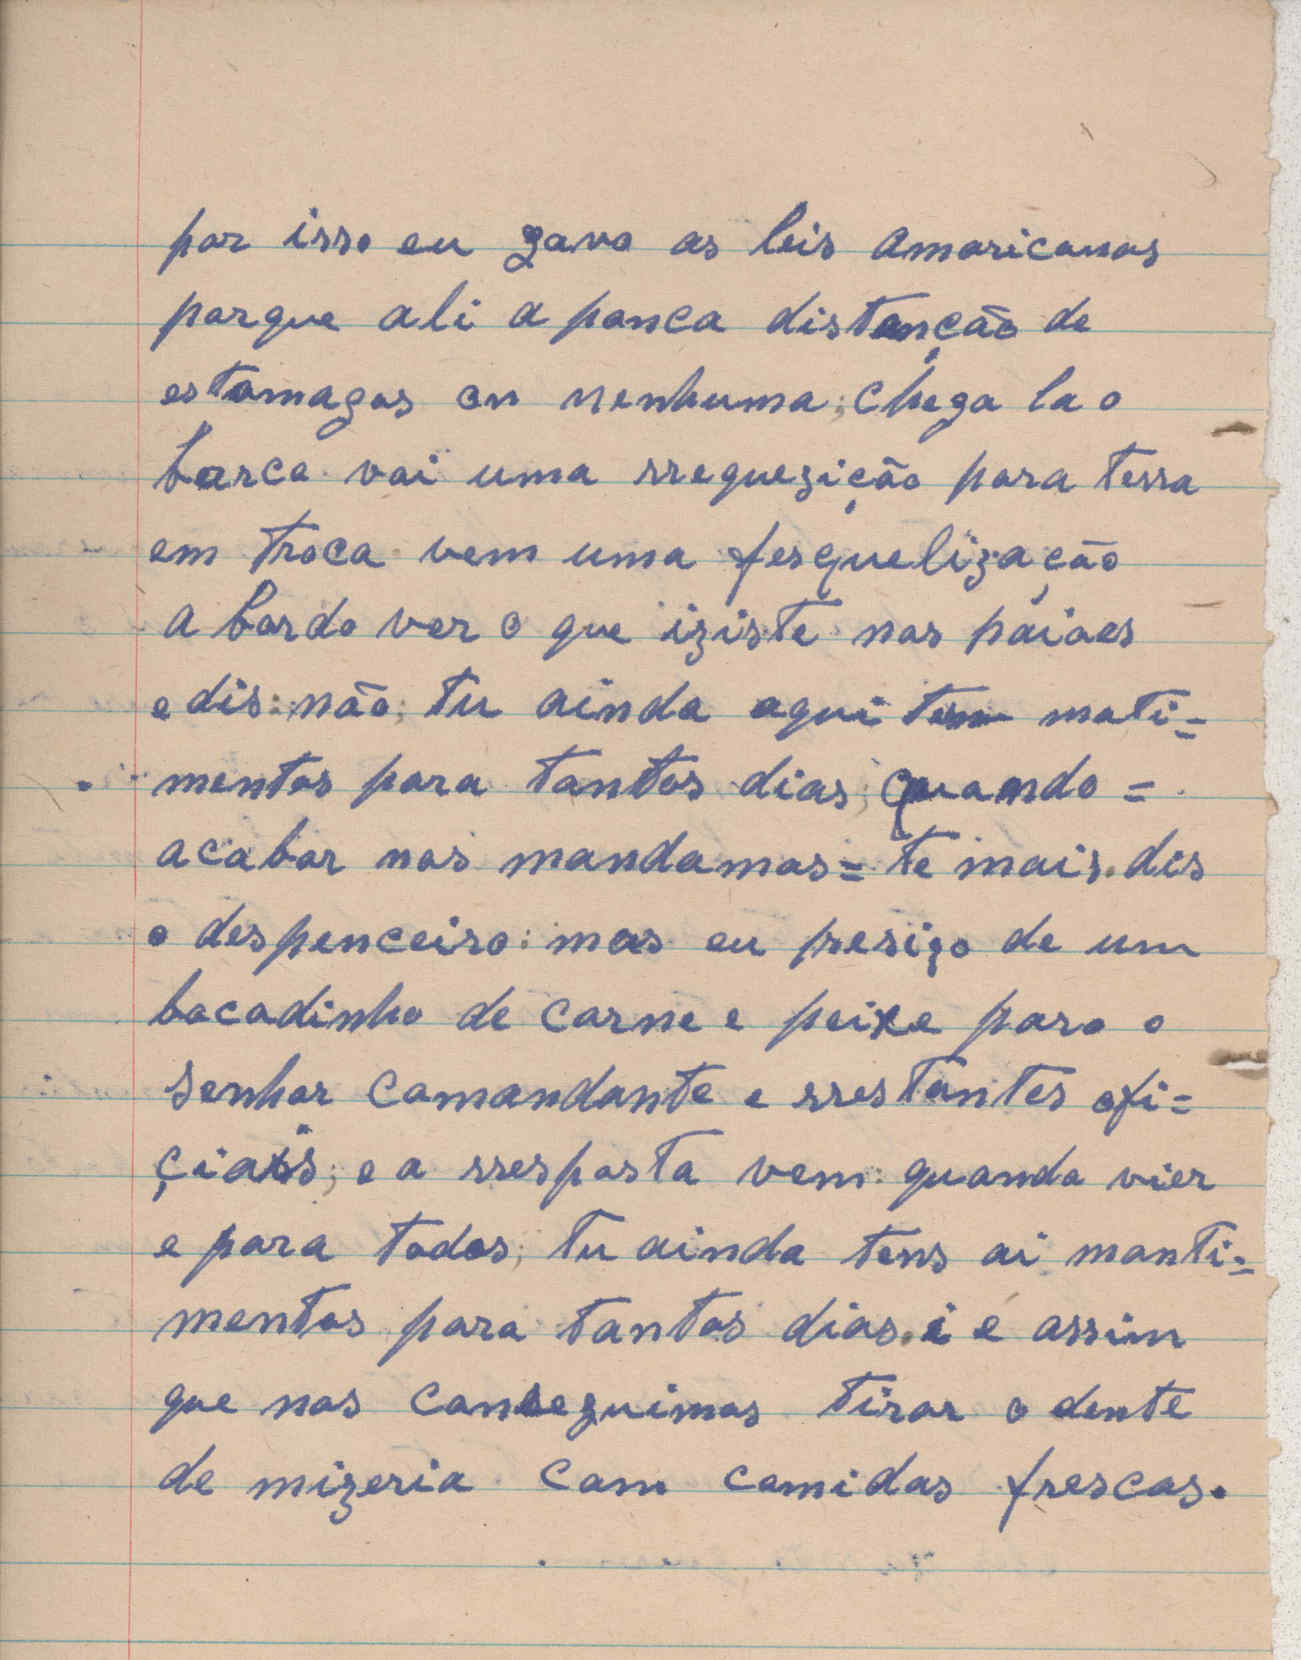 por isso eu gavo as leis amaricanas
porque ali a pouca distançáo de
estomagos ou nenhuma; chega la o
barco vai uma rrequeziçáo para terra
em troca vem uma fesquelizaçáo
a bordo ver o que iziste nos paioes
e dis: não; tu ainda aqui tem mati=
mentos para tantos dias; quando =
acabar nos mandamos= te mais. dis
o despenceiro: mas eu presizo de um
bocadinho de carne e peixe para o
senhor comandante e rrestantes ofi=
çiais; e a rresposta vem: quando vier
e para todos; tu ainda tens ai manti=
mentos para tantos dias. i é assim
que nos conseguimos tirar o dente
de mizeria com comidas frescas.